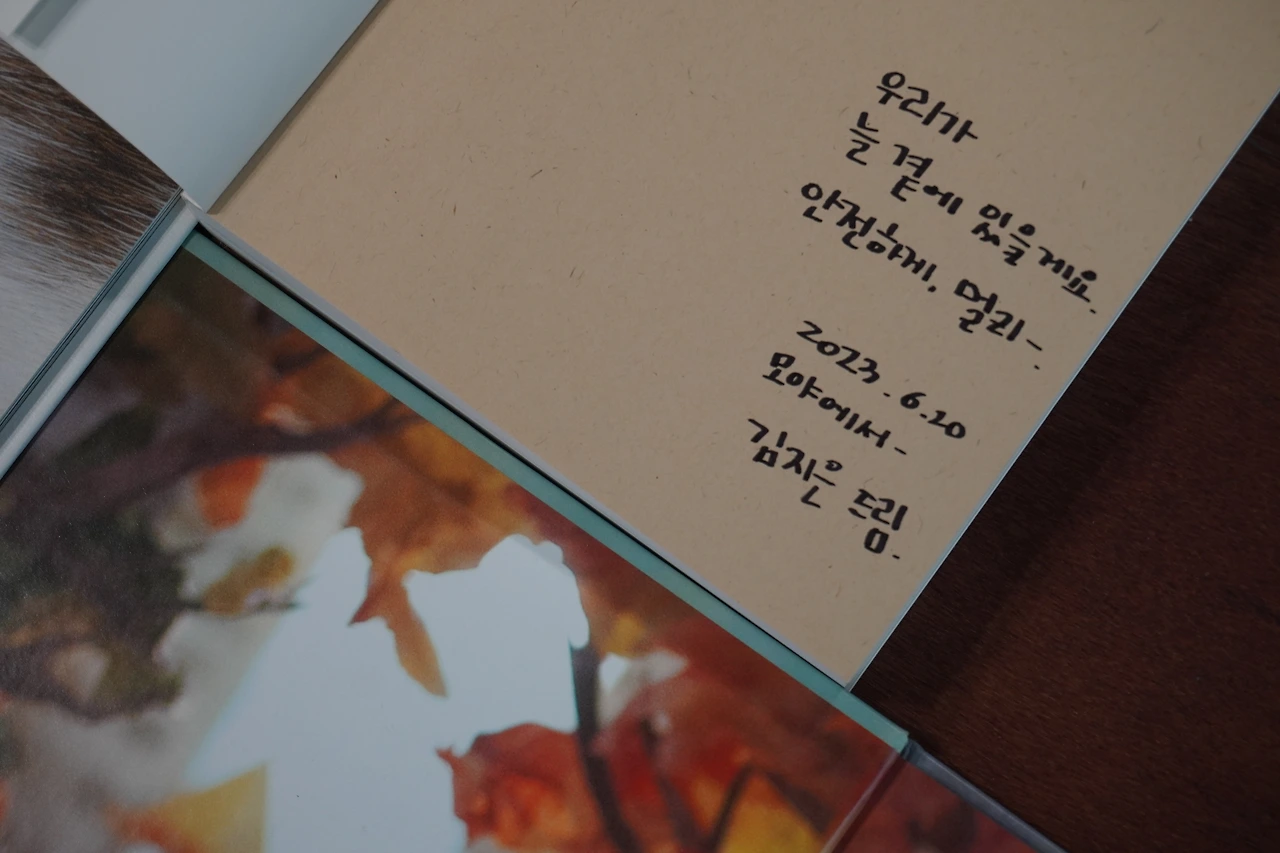 우리가
늘 곁에 있을게요.
안전하게, 멀리~.
2023.6.20
모야에서~
김지은 드림.